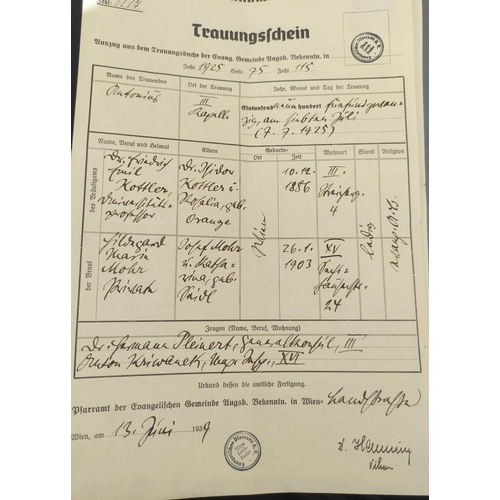 Trauungsschein
Auszug aus dem Trauungsbuche der Evang. Gemeinde Augsb. Bekenntn. in
Jahr 1925 Seite 75 Zahl 115
Name des Trauenden
Ort der Trauung
Jahr, Monat und Tag der Trauung
Antonius
III
Kapelle
Eintausend neunhundert fünfundzwan-
zig, am siebten Juli
(7. 7. 1925)
Name, Beruf und Heimat
Eltern
Geburts-
Ort
Zeit
Wohnort
Stand
Religion
des Bräutigams
Dr. Friedrich
Emil
Kottler,
Universitäts-
professor
Dr. Isidor
Kottler u.
Rosalia, geb.
Orange
Wien
10. 12.
1886
III.
4
ledig
evang. A. B.
der Braut
Hildegard
Maria
Mohr
Private
Josef Mohr
u. Katha-
rina, geb.
Seidl
26. 1.
1903
XV
24
Zeugen (Name, Beruf, Wohnung)
Dr. Hermann Pleinert, Generalkonsul, III
Anton Kriwanek, Insp., XVI
Urkund dessen die amtliche Fertigung.
Pfarramt der Evangelischen Gemeinde Augsb. Bekenntn. in Wien- Landstraße
Wien, am 13. Juni 1939
Vikar